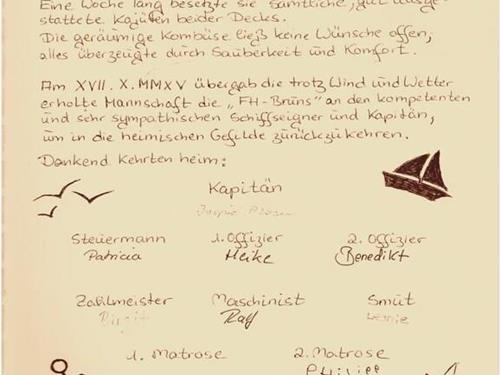 Eine Woche lang besetzte sie sämtliche, gut ausge-
stattete Kajüten beider Decks.
Die geräumige Kombüse ließ keine Wünsche offen,
alles überzeugte durch Sauberkeit und Komfort.
Am XVII. X. MMXV übergab die trotz Wind und Wetter
erholte Mannschaft die „FH-Bruns" an den kompetenten
und sehr sympathischen Schiffseigner und Kapitän,
um in die heimischen Gefilde zurückzukehren.
Dankend kehrten heim:
Kapitän
Steuermann 1. Offizier 2. Offizier
Patricia Heike Benedikt
Zahlmeister Maschinist Smut
Birgit Ralf
1. Matrose 2. Matrose
Philipp